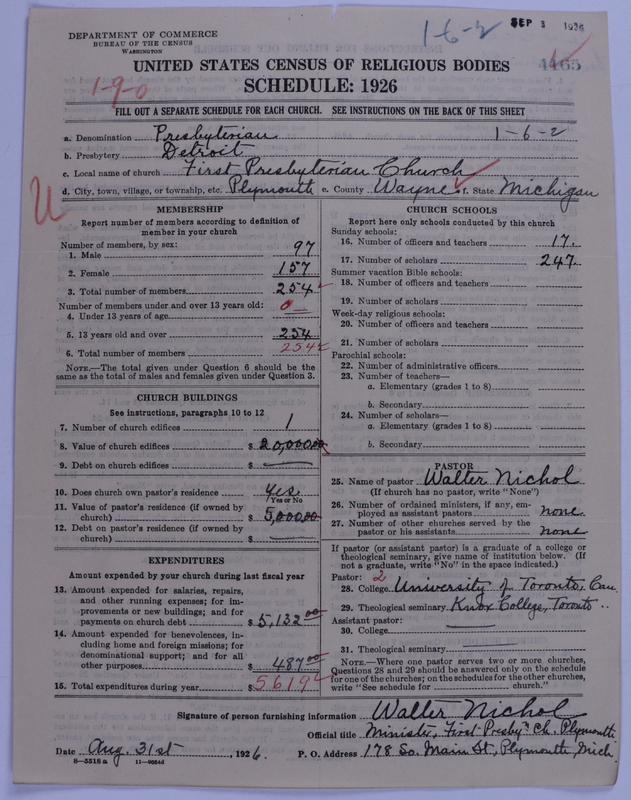 DEPARTMENT OF COMMERCE
BUREAU OF THE CENSUS
WASHINGTON
1-6-2
SEP 3 1926
4165
UNITED STATES CENSUS OF RELIGIOUS BODIES
SCHEDULE: 1926
1-9-0
FILL OUT A SEPARATE SCHEDULE FOR EACH CHURCH. SEE INSTRUCTIONS ON THE BACK OF THIS SHEET
a. Denomination Presbyterian 1-6-2
b. Presbytery Detroit
c. Local name of church First Presbyterian Church
d. City, town, village, or township, etc. Plymouth e. County Wayne f. State Michigan
U
MEMBERSHIP
Report number of members according to definition of
member in your church
Number of members, by sex:
1. Male 97
2. Female 157
3. Total number of members 254
Number of members under and over 13 years old:
4. Under 13 years of age 0 —
5. 13 years old and over 254
6. Total number of members 254
NOTE.—The total given under Question 6 should be
same as the total of males and females given under Question 3.
CHURCH BUILDINGS
See instructions, paragraphs 10 to 12
7. Number of church edifices 1
8. Value of church edifices $ 20,000.00
9. Debt on church edifices $ —
10. Does church own pastor's residence Yes
Yes or No
11. Value of pastor's residence (if owned by
church) $ 5,000.00
12. Debt on pastor's residence (if owned by
church) $ —
EXPENDITURES
Amount expended by your church during last fiscal year
13. Amount expended for salaries, repairs,
and other running expenses; for im-
provements or new buildings; and for
payments on church debt $ 5,132.00
14. Amount expended for benevolences, in-
cluding home and foreign missions; for
denominational support; and for all
other purposes $ 487.00
15. Total expenditures during year $ 5619
CHURCH SCHOOLS
Report here only schools conducted by this church
Sunday schools:
16. Number of officers and teachers 17.
17. Number of scholars 247
Summer vacation Bible schools:
18. Number of officers and teachers
19. Number of scholars
Week-day religious schools:
20. Number of officers and teachers
21. Number of scholars
Parochial schools:
22. Number of administrative officers
23. Number of teachers—
a. Elementary (grades 1 to 8)
b. Secondary
24. Number of scholars—
a. Elementary (grades 1 to 8)
b. Secondary
PASTOR
25. Name of pastor Walter Nichol
(If church has no pastor, write "None")
26. Number of ordained ministers, if any, em-
ployed as assistant pastors none.
27. Number of other churches served by the
pastor or his assistants none
If pastor (or assistant pastor) is a graduate of a college or
theological seminary, give name of institution below. (If
not a graduate, write "No" in the space indicated.)
Pastor: 2
28. College University of Toronto, Can.
29. Theological seminary Knox College, Toronto ..
Assistant pastor:
30. College —
31. Theological seminary —
NOTE.—Where one pastor serves two or more churches,
Questions 28 and 29 should be answered only on the schedule
for one of the churches; on the schedules for the other churches,
write "See schedule for church."
Signature of person furnishing information Walter Nichol
Official title Minister, First Presby'n Ch. Plymouth
Date Aug. 31st, 1926. P. O. Address 178 So. Main St, Plymouth, Mich.
8—5518 a 11—9664d